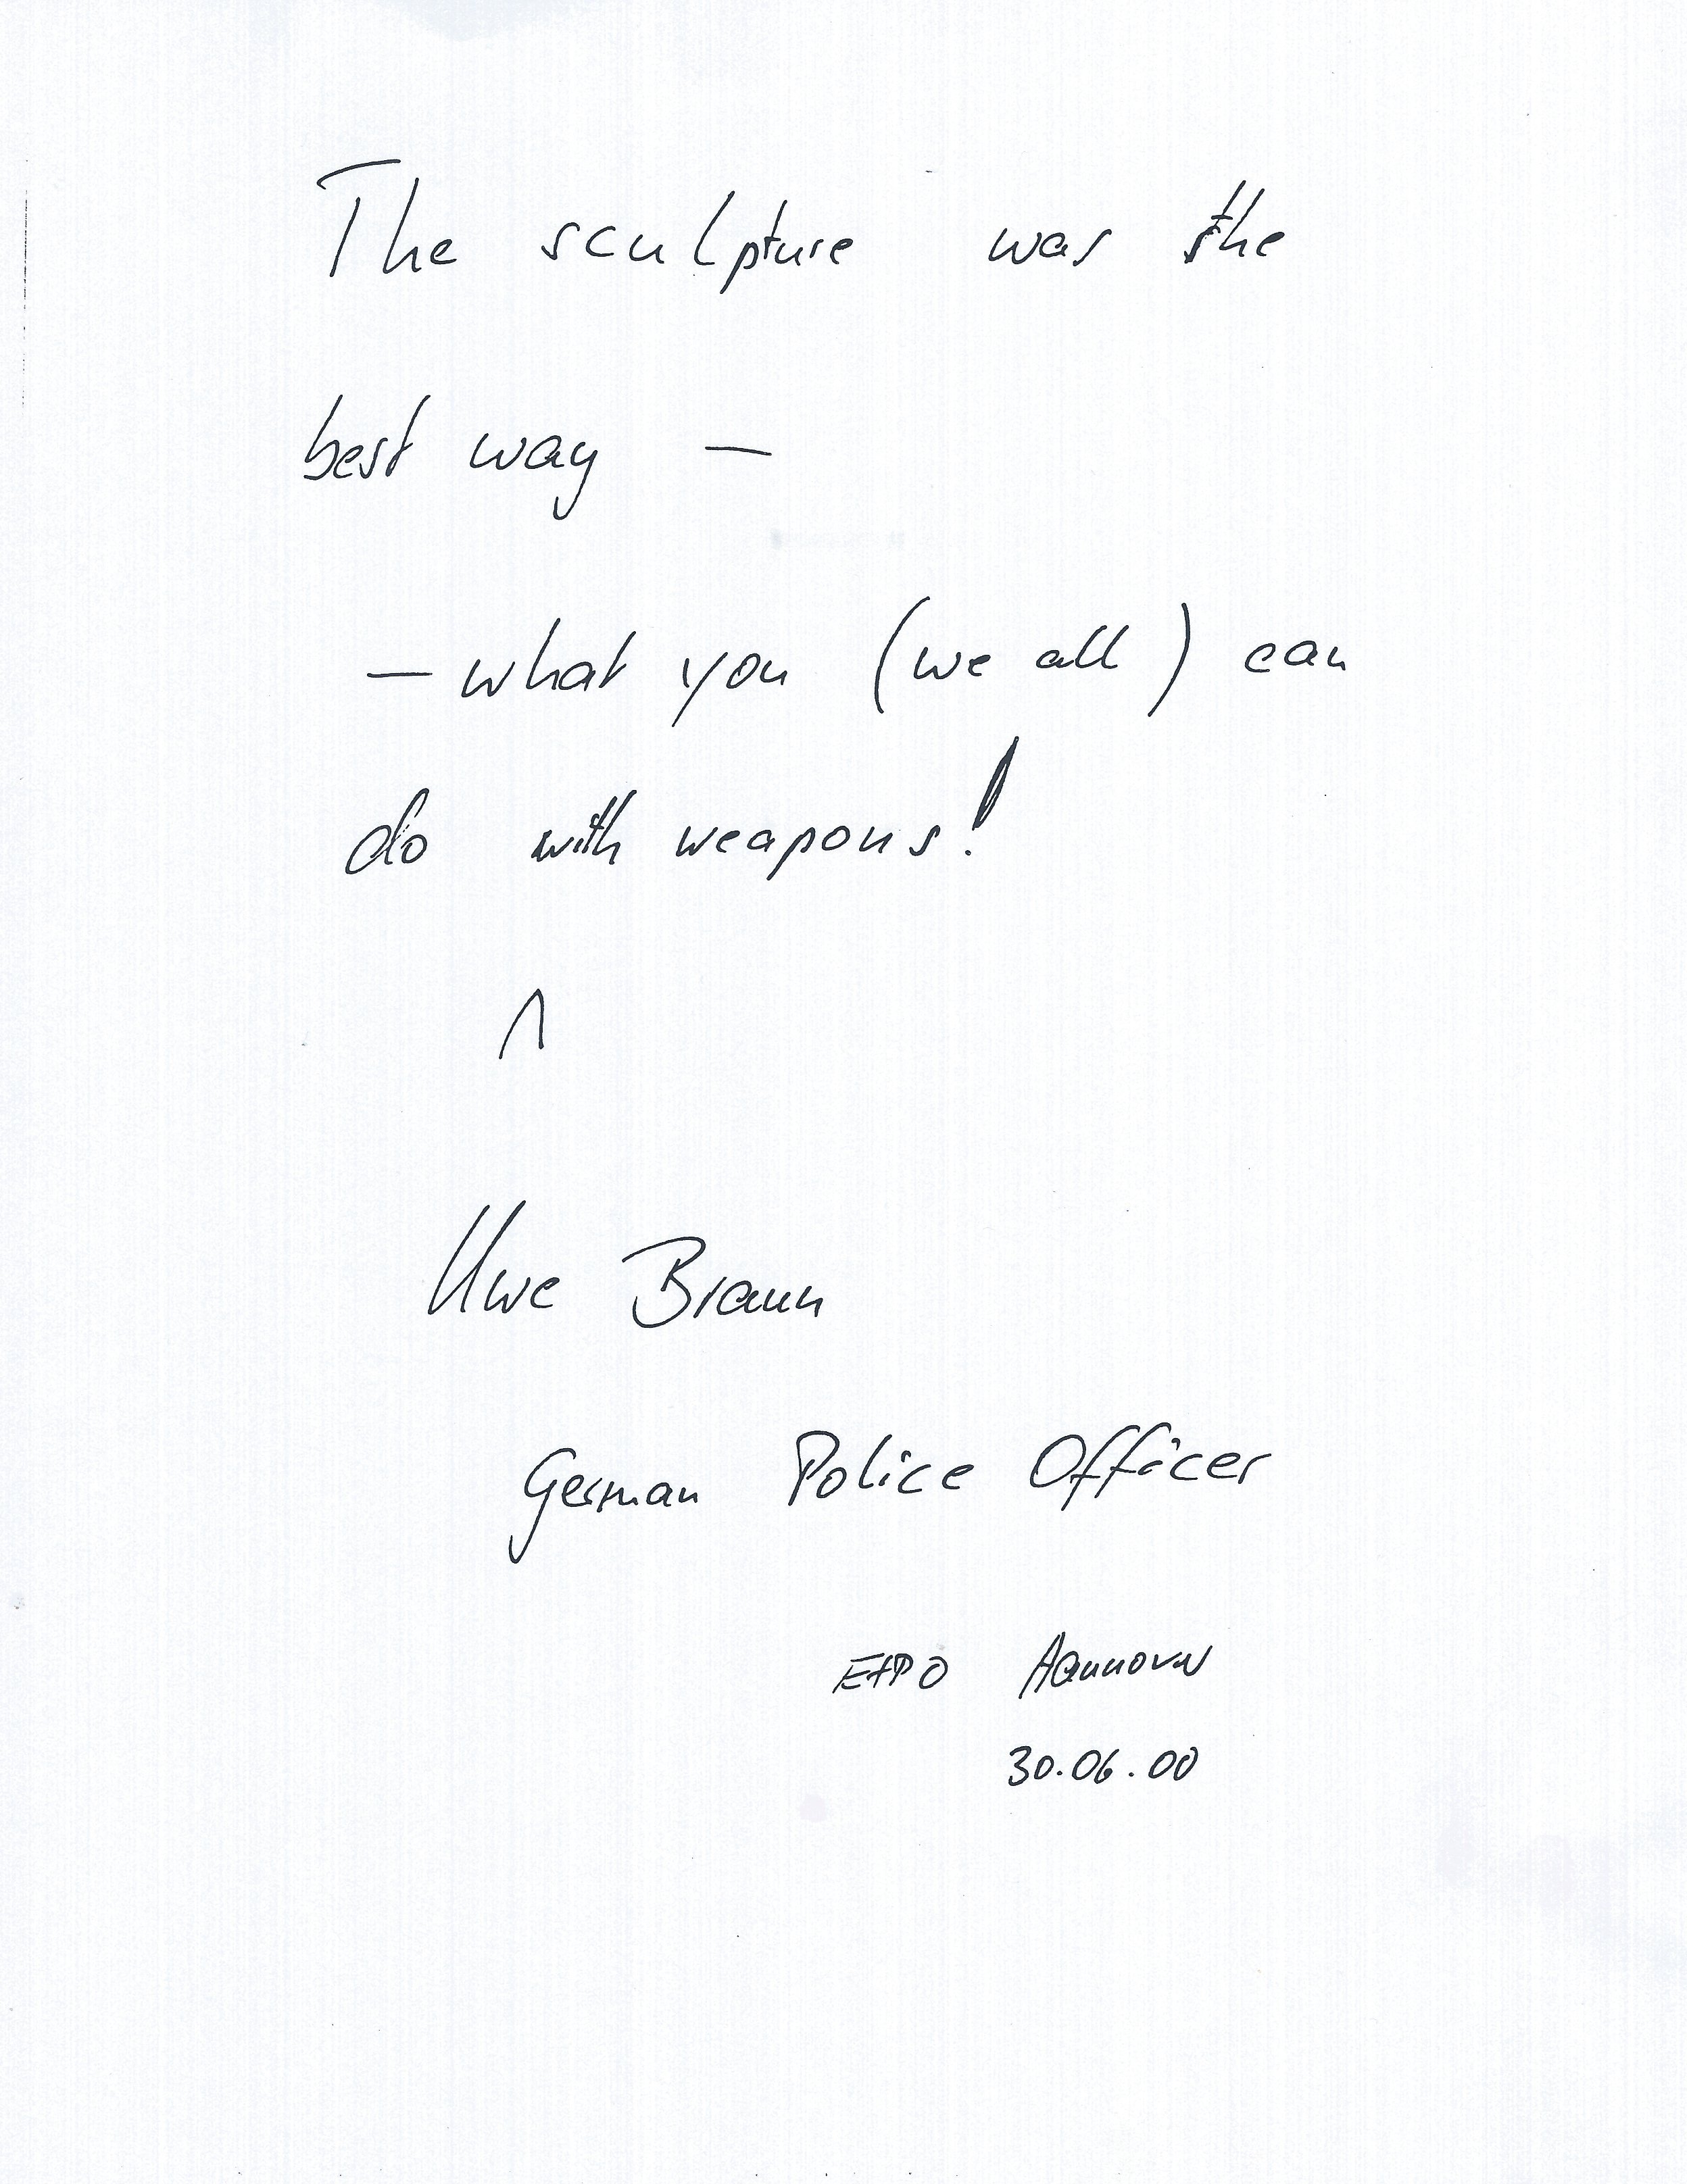 The sculpture was the
best way —
— what you (we all) can
do with weapons!
Uwe Braun
German Police Officer
EXPO Hannover
30.06.00